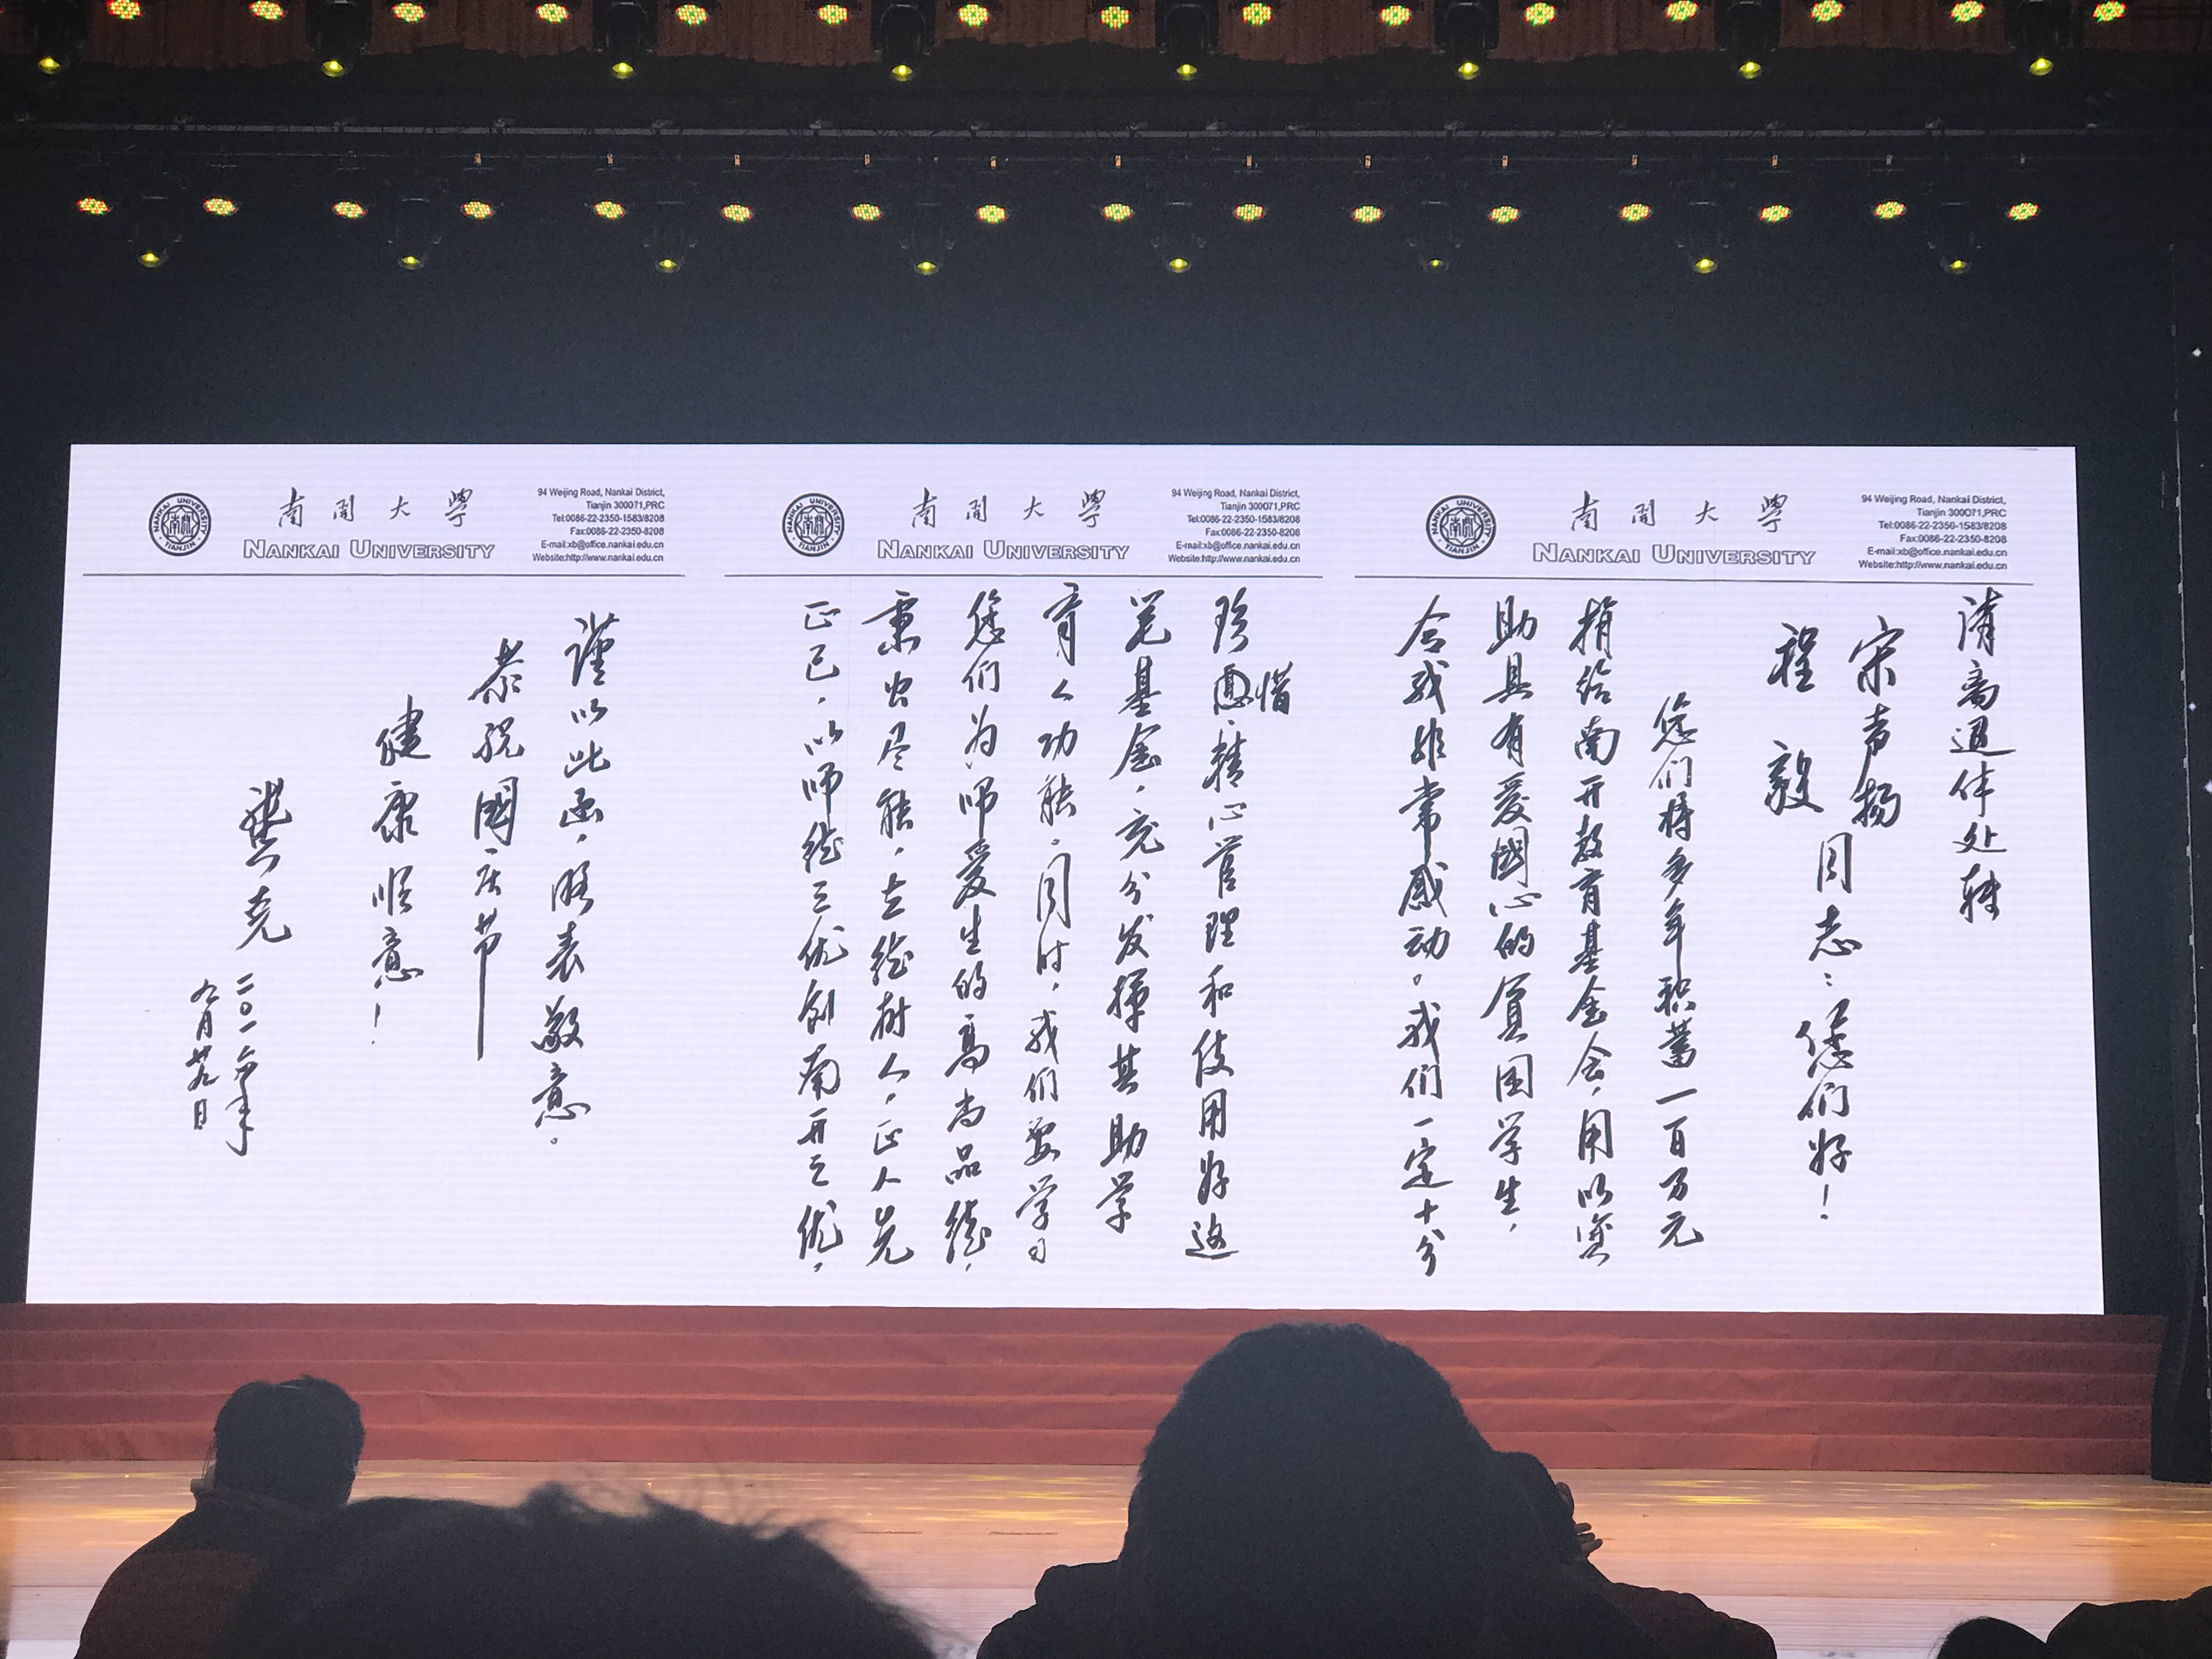 南開大學
NANKAI UNIVERSITY
94 Weijing Road, Nankai District,
Tianjin 300071,PRC
Tel:0086-22-2350-1583/8208
Fax:0086-22-2350-8208
E-mail:xb@office.nankai.edu.cn
Website:http://www.nankai.edu.cn
请离退休处转
宋声扬
程毅
同志:您们好!
您们将多年积蓄一百万元
捐给南开教育基金会,用以奖
助具有愛國心的貧困学生,
令我非常感动。我们一定十分
南開大學
NANKAI UNIVERSITY
94 Weijing Road, Nankai District,
Tianjin 300071,PRC
Tel:0086-22-2350-1583/8208
Fax:0086-22-2350-8208
E-mail:xb@office.nankai.edu.cn
Website:http://www.nankai.edu.cn
珍惜,精心管理和使用好这
笔基金,充分发挥其助学
育人功能。同时,我们要学习
您们为师愛生的高尚品德,
秉尽能,立德树人,正人先
正己,以师德三优创南开三优,
南開大學
NANKAI UNIVERSITY
94 Weijing Road, Nankai District,
Tianjin 300071,PRC
Tel:0086-22-2350-1583/8208
Fax:0086-22-2350-8208
E-mail:xb@office.nankai.edu.cn
Website:http://www.nankai.edu.cn
谨以此函,略表敬意。
恭祝國庆节
健康顺意!
龚克
二〇一六年
九月廿九日